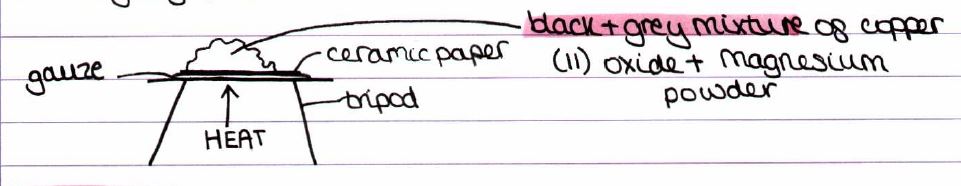 black + grey mixture of copper
ceramic paper
(II) oxide + magnesium
gauze
tripod
powder
HEAT